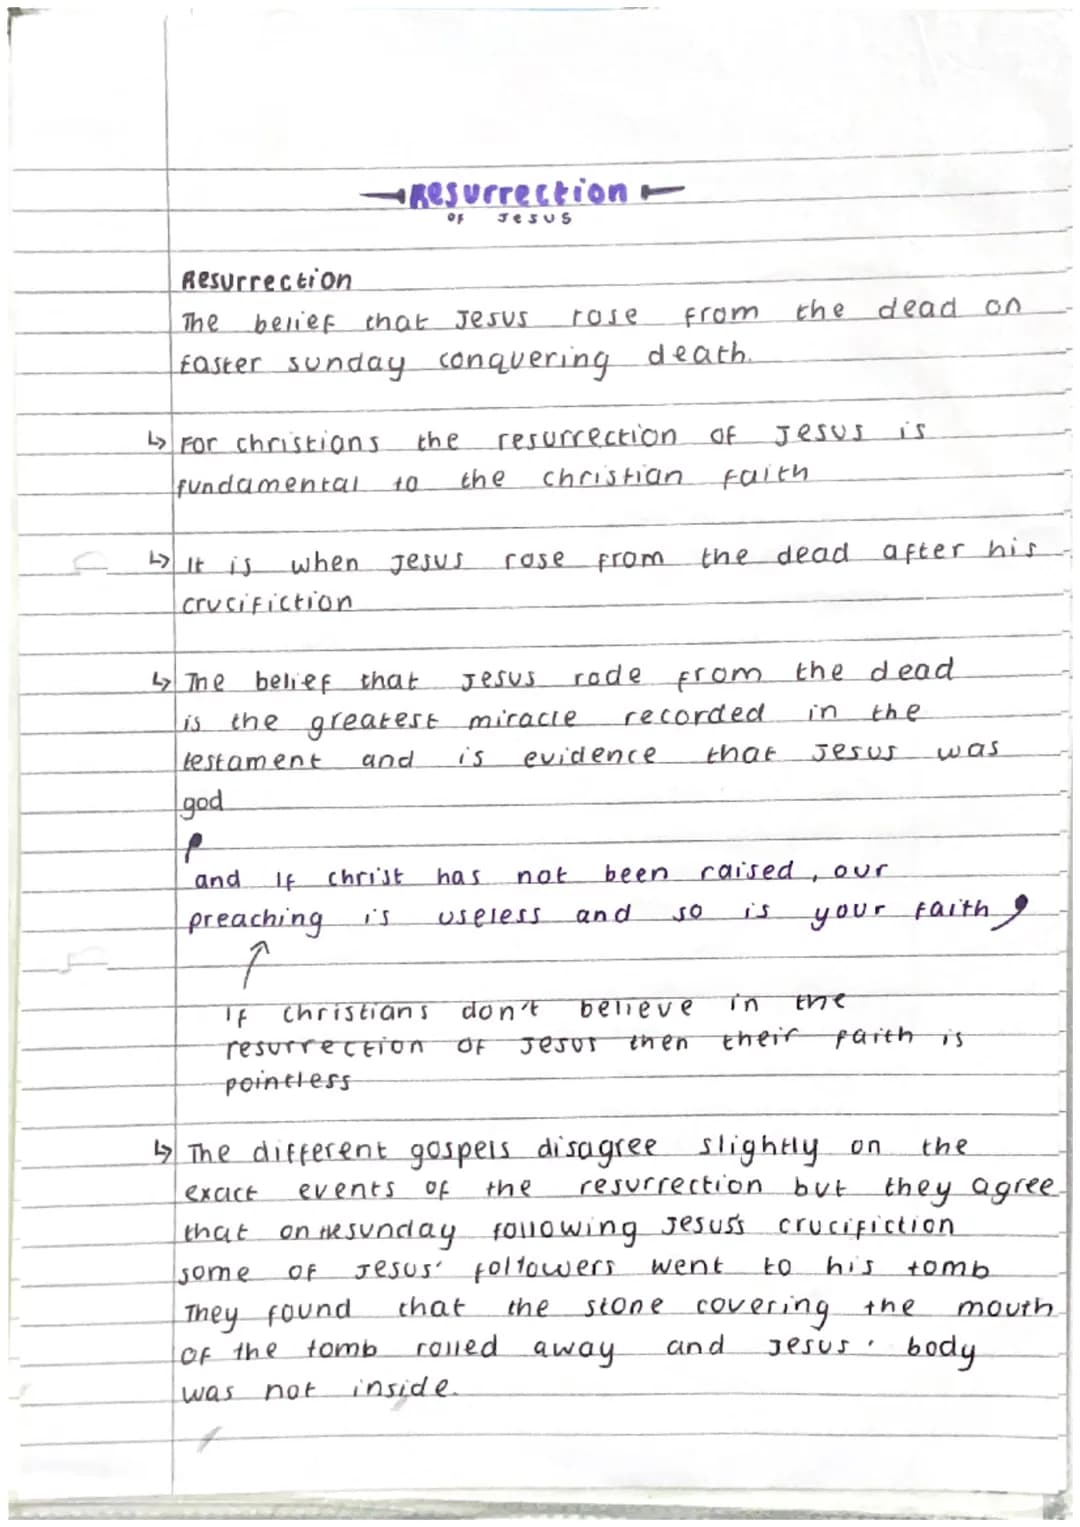 Resurrection
of Jesus
Resurrection
The belief that Jesus rose from the dead on
Easter sunday conquering death.
↳ For christians the resurrection of Jesus is
fundamental to the christian faith
↳ It is when Jesus rose from the dead after his
crucifiction
↳ The belief that Jesus rode from the dead
is the greatest miracle recorded in the
testament and is evidence that Jesus was
god
and If christ has not been raised, our
preaching is useless and so is your faith
If christians don't believe in the
resurrection of Jesus then their faith is
pointless
↳ The different gospels disagree slightly on the
exact events of the resurrection but they agree
that on the sunday following Jesus's crucifiction
some of Jesus' followers went to his tomb
They found that the stone covering the mouth
of the tomb rolled away and Jesus' body
was not inside.